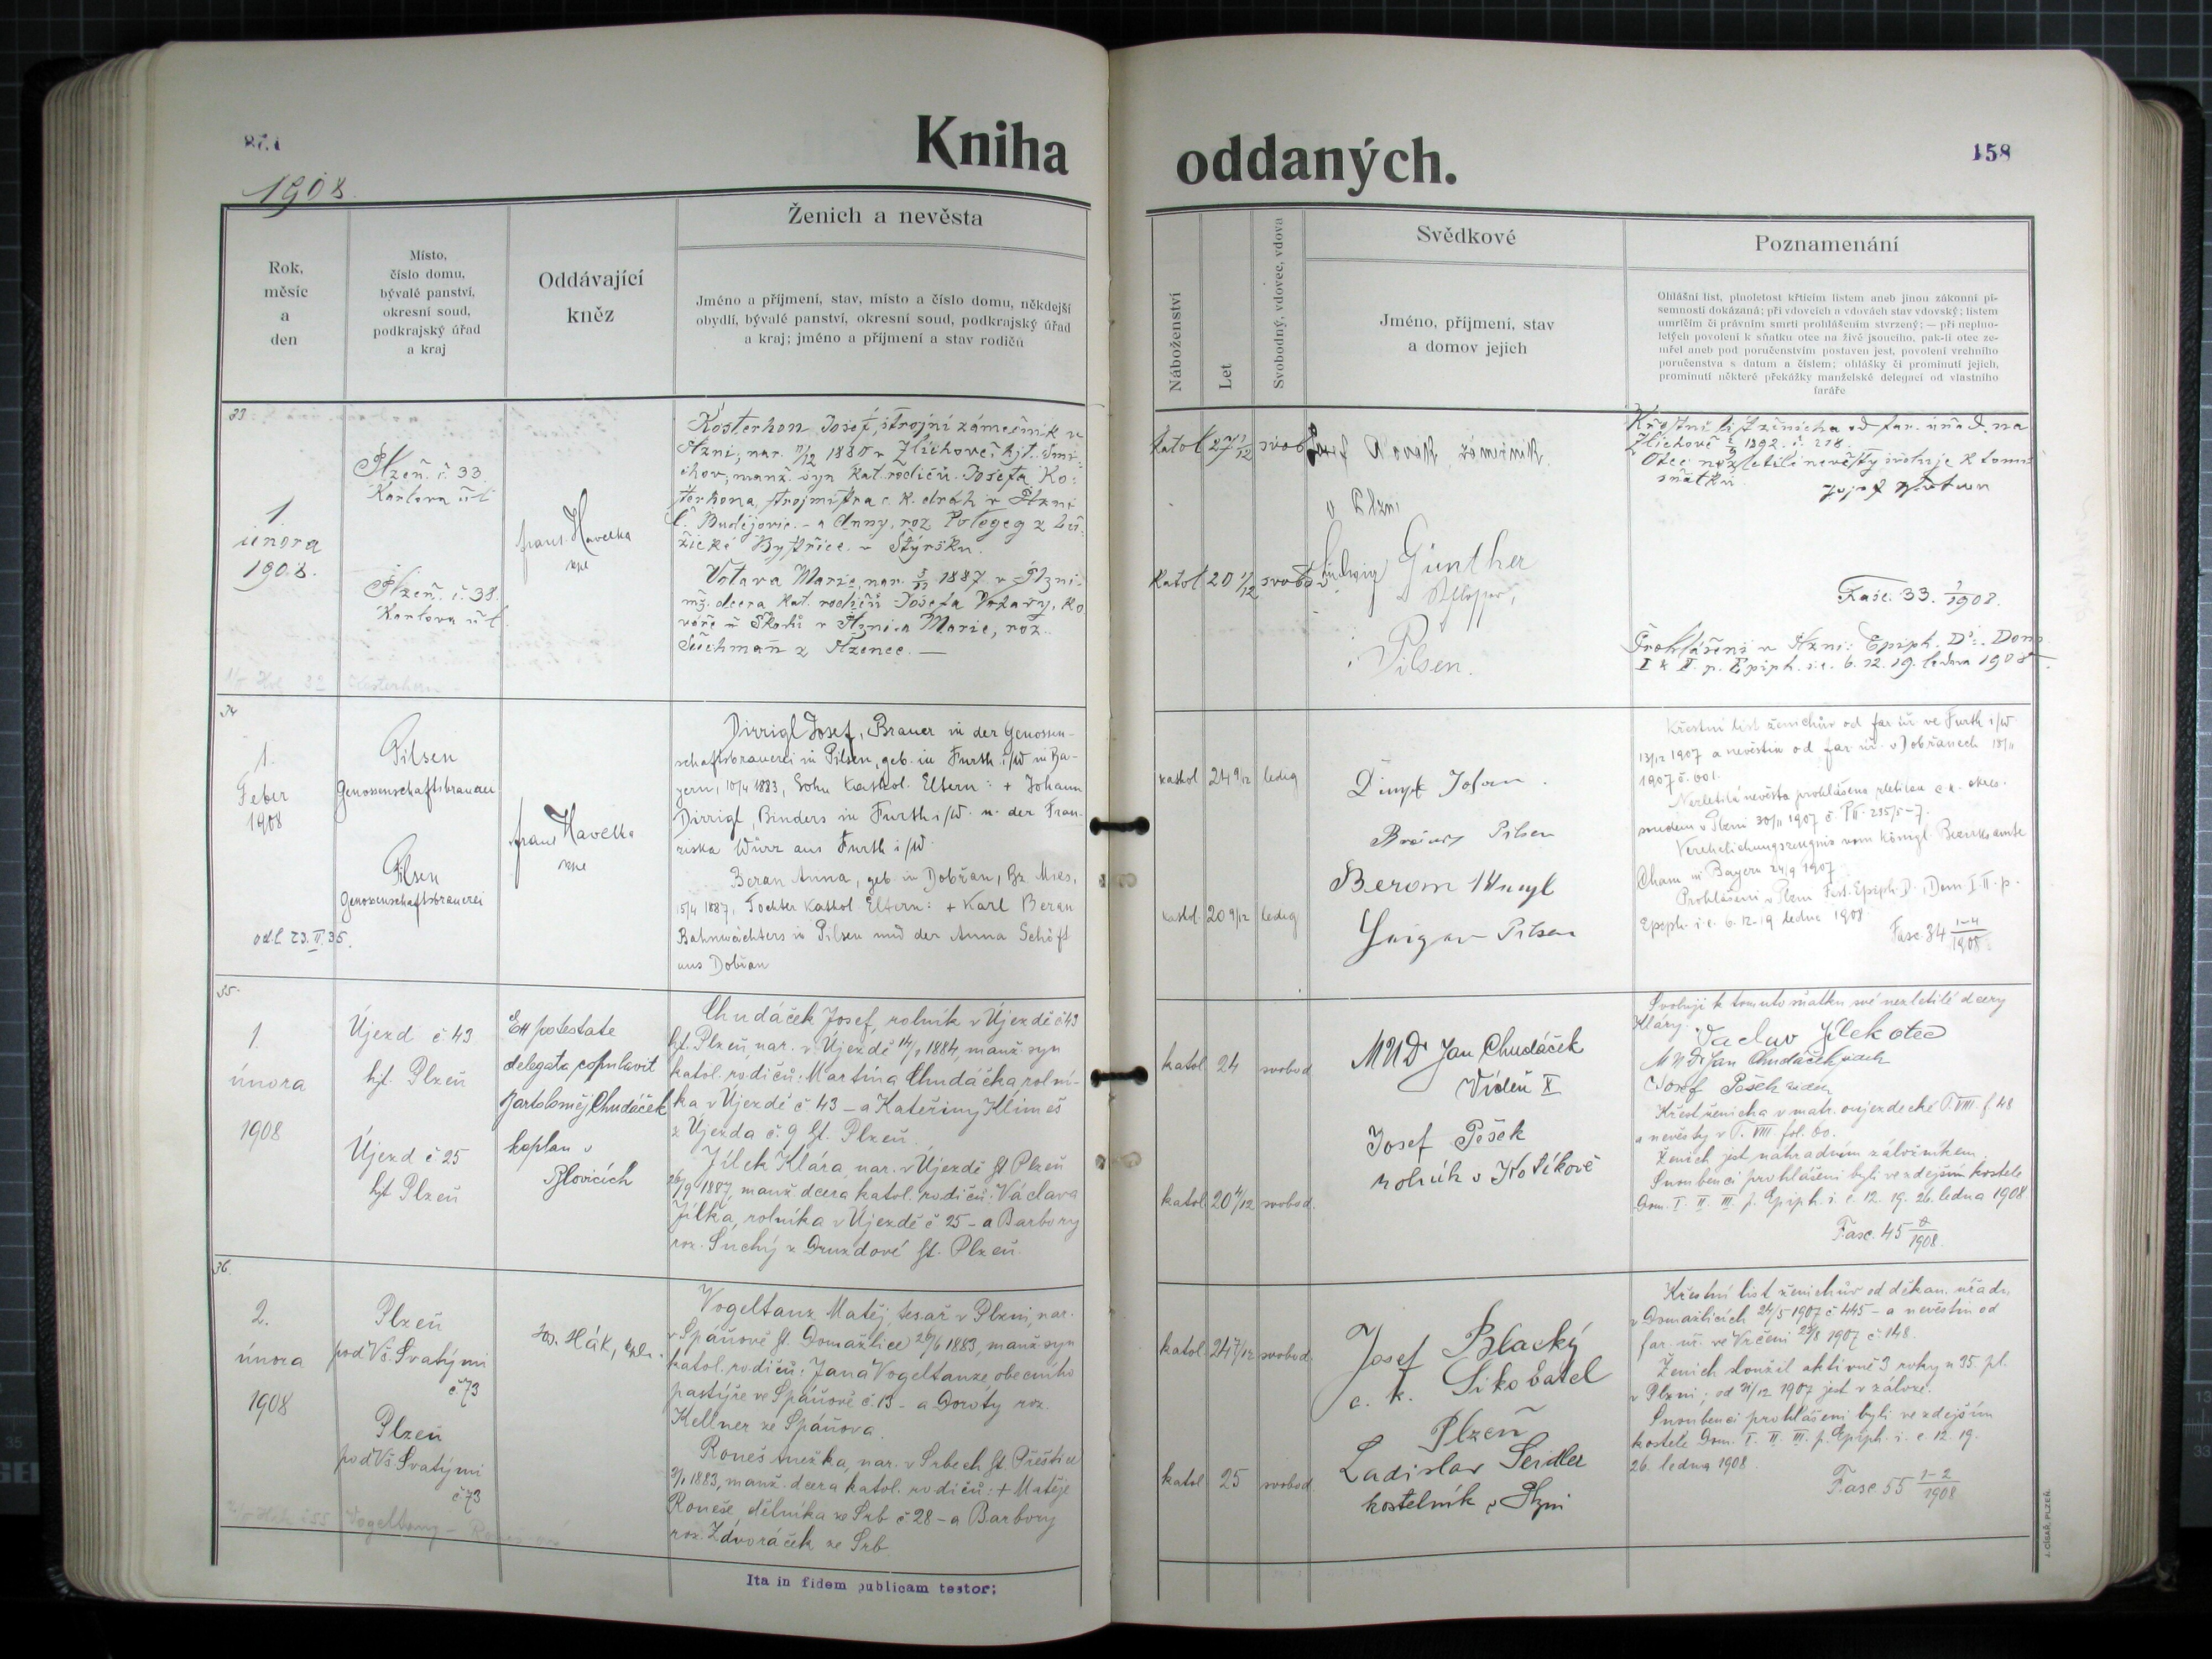 Kniha
oddaných.
158
1908.
Rok,
měsíc
a
den
Místo,
číslo domu,
bývalé panství,
okresní soud,
podkrajský úřad
a kraj
Oddávající
kněz
Ženich a nevěsta
Jméno a příjmení, stav, místo a číslo domu, někdejší
obydlí, bývalé panství, okresní soud, podkrajský úřad
a kraj; jméno a příjmení a stav rodičů
Náboženství
Let
Svobodný, vdovec, vdova
Svědkové
Jméno, příjmení, stav
a domov jejich
Poznamenání
Ohlášní list, plnoletost křticím listem aneb jinou zákonní pí-
semností dokázaná; při vdovcích a vdovách stav vdovský; listem
umrlčím či právním smrti prohlášením stvrzený; — při neplno-
letých povolení k sňatku otce na živě jsoucího, pak-li otec ze-
mřel aneb pod poručenstvím postaven jest, povolení vrchního
poručenstva s datum a číslem; ohlášky či prominutí jejich,
prominutí některé překážky manželské delegací od vlastního
faráře
33.
1
února
1908.
Plzeň. č. 33.
Karlova ul.
Plzeň. č. 38.
Karlova ul.
Frant. Havelka
Kosterhon Josef, strojní zámečník v
Plzni, nar. 1880 v Zlíchově, hjt. Smí-
chov, manž. syn kat. rodičů Josefa Ko-
sterhona, strojmistra c. k. drah v Plzni
č. Budějovic. - a Anny, roz.
Bystřice v Štýrsku.
Votava Marie, nar. 1887 v Plzni
mž. dcera kat. rodičů Josefa Votavy, ko
váře u Škodů v Plzni a Marie, roz.
z Plzence. —
katol 27 svob
katol 20 svob
Josef Novák zámečník
v Plzni
Ludwig Günther
Pilsen.
Křestní list ženicha od far. úřadu na
Zlíchově 1892. č. 218.
Otec nezletilé nevěsty svoluje k tomu
sňatku. Josef Votava
Fasc. 33. 1908.
Prohlášeni v Plzni: Epiph. Di. Dom.
I & II. p. Epiph. i. e. 6. 12. 19. ledna 1908.
34
1.
Feber
1908
Pilsen
Genossenschaftsbrauerei
Pilsen
Genossenschaftsbrauerei
odl. 23. II. 35.
Frant. Havelka
Dirrigl Josef, Brauer in der Genossen-
schaftsbrauerei in Pilsen, geb. in Furth i/W in Ba-
yern, 10/4 1883, Sohn kathol. Eltern: + Johann
Dirrigl, Binders in Furth i/W. u. der Fran-
ziska Würz aus Furth i/W.
Beran Anna, geb. in Dobřan, Bz. Mies,
15/4 1887, Tochter kathol. Eltern: + Karl Beran
Bahnwächters in Pilsen und der Anna Schöft
aus Dobřan
kathol 24 9/12 ledig
kathol. 20 9/12 ledig
Pilsen
Pilsen
Křestní list ženichův od far. úř. ve Furth i/W.
13/12 1907 a nevěstin od far. úř. v Dobřanech 18/11
1907 č. 601.
Nezletilá nevěsta prohlášena zletilou c. k. okres.
soudem v Plzni 30/11 1907 č. P II. 235/5-7.
Verehelichungszeugnis vom königl. Bezirksamte
Cham in Bayern 24/9 1907.
Prohlášeni v Plzni Fest. Epiph. D., Dom. I. II. p.
Epiph. i. e. 6. 12. 19 ledna 1908
Fasc. 34 1-4/1908.
35.
1.
února
1908
Újezd č 43
hjt. Plzeň
Újezd č 25
hjt Plzeň
Ex potestate
delegata copulavit
Bartoloměj Chudáček
kaplan v
Blovicích
Chudáček Josef, rolník v Újezdě č 43
hjt. Plzeň, nar. v Újezdě 14/1 1884, manž. syn
katol. rodičů: Martina Chudáčka, rolní-
ka v Újezdě č. 43 - a Kateřiny Klimeš
z Újezda č. 9 hjt. Plzeň.
Jílek Klára, nar. v Újezdě hjt Plzeň
26/9 1887, manž. dcera katol. rodičů: Václava
Jílka, rolníka v Újezdě č 25 - a Barbory
roz. Suchý z Druzdové hjt. Plzeň.
katol 24 svobod
katol 20 4/12 svobod.
MUDr Jan Chudáček
Vídeň X
Josef Pešek
rolník v
Svoluji k tomuto sňatku své nezletilé dcery
Kláry. Vaclav Jílek otec
MUDr Jan Chudáček svědek
Josef Pešek svědek
Křest ženicha v matr. oujezdecké T. VIII. f. 48
a nevěsty v T. VIII. fol. 60.
Ženich jest náhradním záložníkem.
Snoubenci prohlášeni byli ve zdejším kostele
Dom. I. II. III. p. Epiph. i. e. 12. 19. 26. ledna 1908
Fasc. 45 1908.
36.
2.
února
1908
Plzeň
pod Vš. Svatými
č. 73
Plzeň
pod Vš. Svatými
č. 73
Jos. Hák,
Vogeltanz Matěj, tesař v Plzni, nar.
v Spáňově hjt. Domažlice 26/6 1883, manž. syn
katol. rodičů: Jana Vogeltanze obecního
pastýře ve Spáňově č. 13 - a Doroty roz.
Kellner ze Spáňova.
Roneš Anežka, nar. v Srbech hjt. Přeštice
1883, manž. dcera katol. rodičů: + Matěje
Roneše, dělníka ze Srb č 28 - a Barbory
roz. Zdvoráček ze Srb
katol 24 7/12 svobod.
katol 25 svobod
Josef Blacký
c. k. Sikovatel
Plzeň
Ladislav Seidler
kostelník v Plzni
Křestní list ženichův od děkan. úřadu
v Domažlicích 24/5 1907 č 445 - a nevěstin od
far. úř. ve Vrčeni 1907 č. 148.
Ženich sloužil aktivně 3 roky u 35. pl.
v Plzni; od 31/12 1907 jest v záloze.
Snoubenci prohlášeni byli ve zdejším
kostele Dom. I. II. III. p. Epiph. i. e 12. 19.
26. ledna 1908.
Fasc 55 1-2/1908
Ita in fidem publicam testor:
J. CÍSAŘ, PLZEŇ.